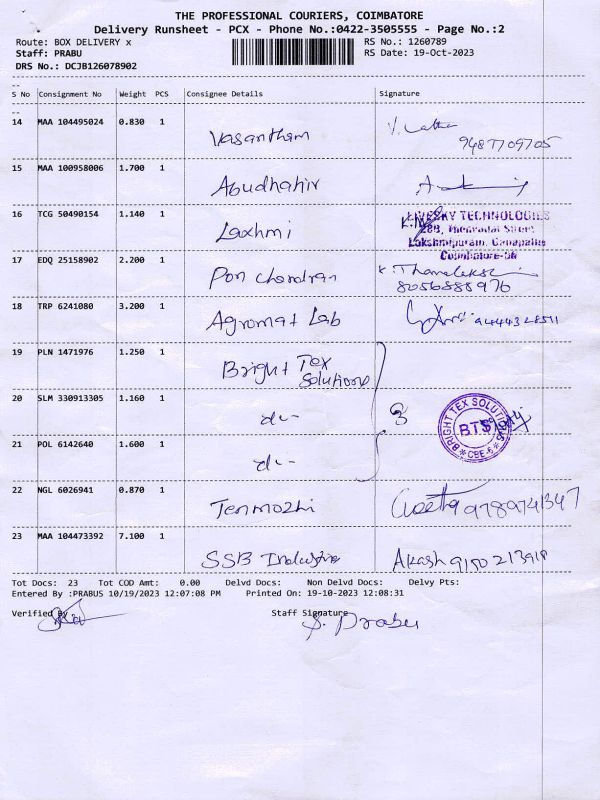 THE PROFESSIONAL COURIERS, COIMBATORE
Delivery Runsheet - PCX - Phone No.:0422-3505555 - Page No.:2
Route: BOX DELIVERY x RS No.: 1260789
Staff: PRABU RS Date: 19-Oct-2023
DRS No.: DCJB126078902
S No Consignment No Weight PCS Consignee Details Signature
14 MAA 104495024 0.830 1 Vasantham V. Latha
9487709705
15 MAA 100958006 1.700 1 Abudhahir
16 TCG 50490154 1.140 1 Laxhmi LIVESKY TECHNOLOGIES
28B, Street
Lakshmipuram, Ganapathy
Coimbatore-
17 EDQ 25158902 2.200 1 Pon chandran
8056888976
18 TRP 6241080 3.200 1 Agromat Lab
19 PLN 1471976 1.250 1 Bright Tex
Solutions
20 SLM 330913305 1.160 1 do- 3 BRIGHT TEX SOLUTIONS BTS CBE-6
21 POL 6142640 1.600 1 do-
22 NGL 6026941 0.870 1 Tenmozhi Geetha 9789741347
23 MAA 104473392 7.100 1 SSB Industries Akash 9150213918
Tot Docs: 23 Tot COD Amt: 0.00 Delvd Docs: Non Delvd Docs: Delvy Pts:
Entered By :PRABUS 10/19/2023 12:07:08 PM Printed On: 19-10-2023 12:08:31
Verified By Staff Signature
S. Prabu